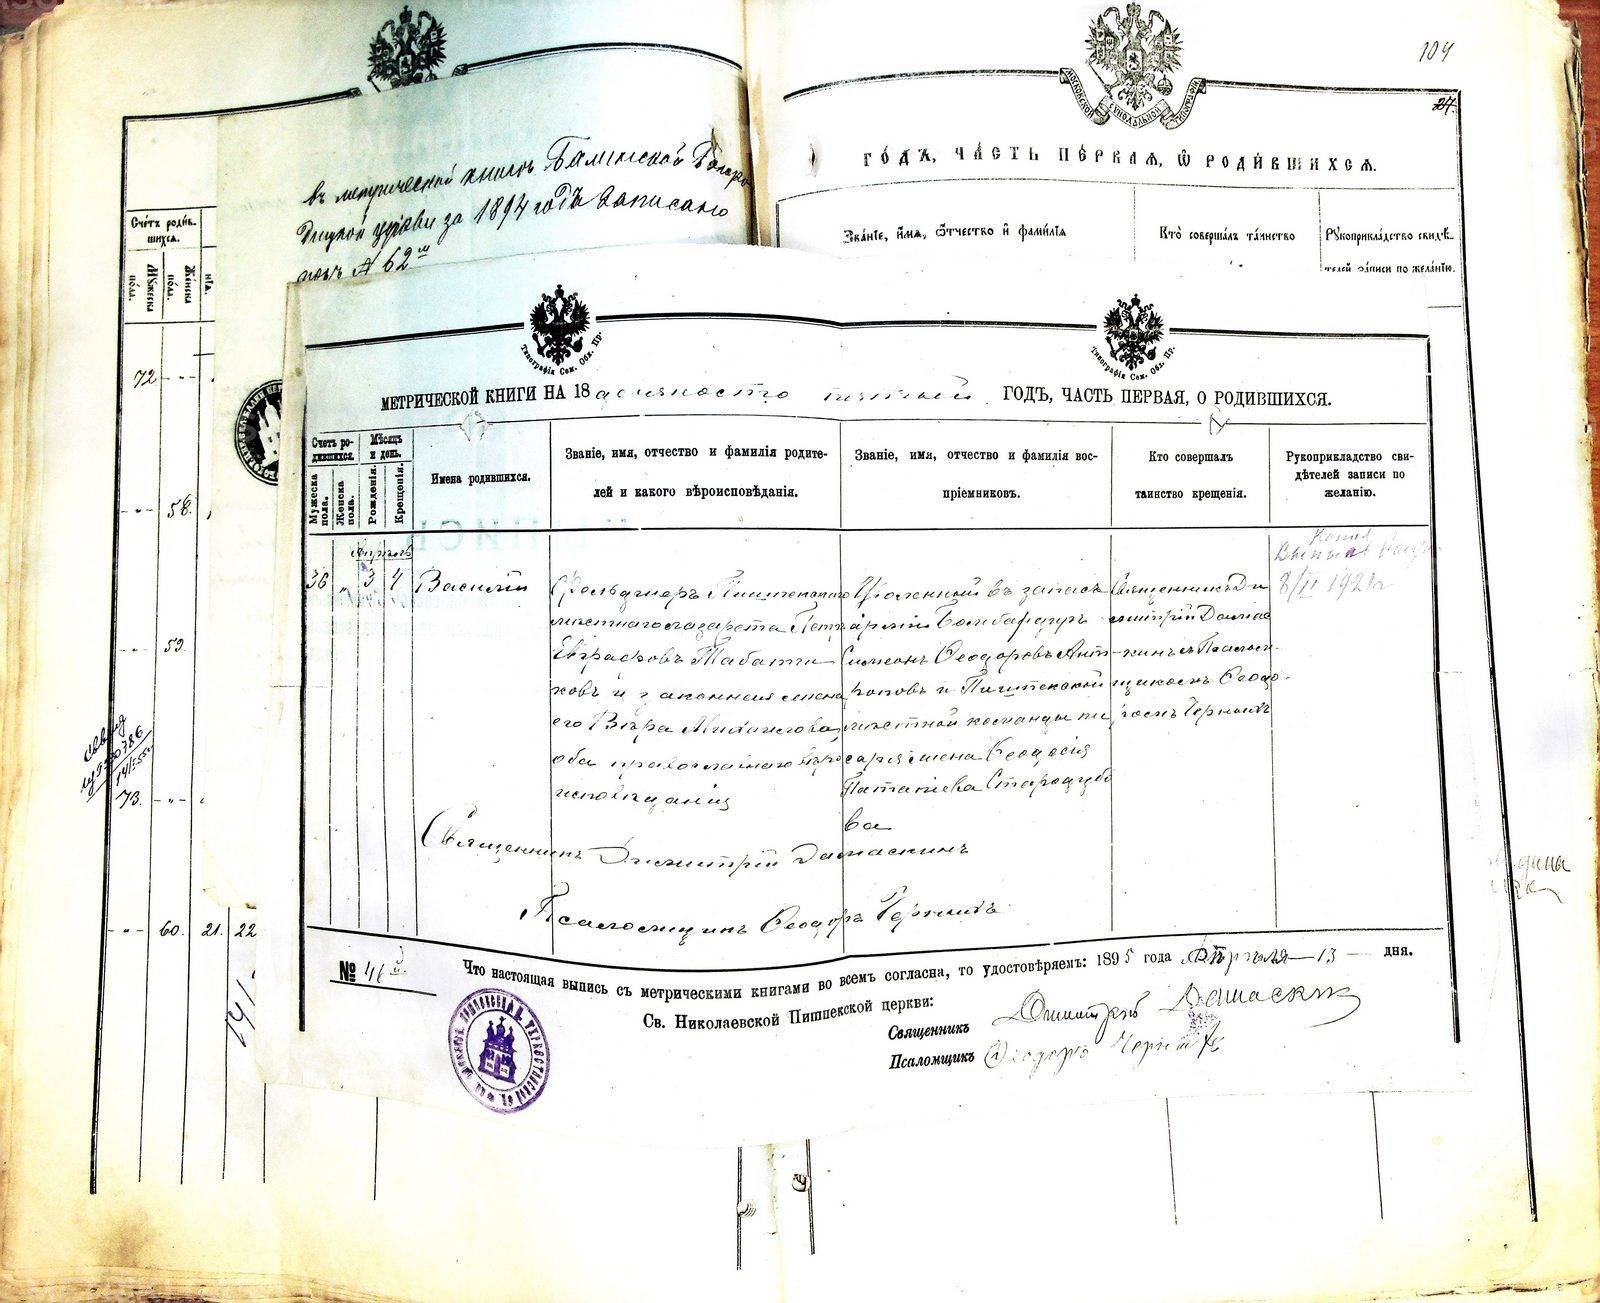 104
27.
МОСКОВСКОЙ СѴНОДАЛЬНОЙ ТИПОГРАФІИ
ГОДЪ, ЧАСТЬ ПЕРВАЯ, Ѡ РОДИВШИХСЯ.
Счетъ родив-
шихся.
Мужеска
полъ.
Женска
полъ.
Званіе, имя, отчество и фамилія
Кто совершалъ таинство
Рукоприкладство свидѣ-
телей записи по желанію.
въ метрической книгѣ
церкви за 1894 годъ записано
№ 62
72
58.
59.
73.
60. 21. 22
141.
Типографія Сем. Обл. Пр.
Типографія Сем. Обл. Пр.
МЕТРИЧЕСКОЙ КНИГИ НА 18 девяносто пятый ГОДЪ, ЧАСТЬ ПЕРВАЯ, О РОДИВШИХСЯ.
Счетъ ро-
дившихся.
Мужеска
пола.
Женска
пола.
Мѣсяцъ
и день.
Рожденія.
Крещенія.
Имена родившихся.
Званіе, имя, отчество и фамилія родите-
лей и какого вѣроисповѣданія.
Званіе, имя, отчество и фамилія вос-
пріемниковъ.
Кто совершалъ
таинство крещенія.
Рукоприкладство сви-
дѣтелей записи по
желанію.
Апрѣль
36 " 3 4 Василій
Фельдшеръ Пишпекскаго
мѣстнаго лазарета Петръ
Евграфовъ Табатчи-
ковъ и законная жена
его Вѣра Михаилова,
оба православнаго вѣро
исповѣданія
Уволенный въ запасъ
арміи Бомбардиръ
Симеонъ Ѳеодоровъ Анти-
повъ и Пишпекской
мѣстной команды пи
саря жена Ѳеодосія
Патапіева Стародубо
ва
Священникъ Ди
митрій Дамас
кинъ съ Псалом-
щикомъ Ѳеодо-
ромъ Чернымъ
Копія
8/II 1921 г
Священникъ Димитрій Дамаскинъ
Псаломщикъ Ѳеодоръ Черный
№ 41
Что настоящая выпись съ метрическими книгами во всемъ согласна, то удостовѣряемъ: 1895 года Апрѣля 13 дня.
Св. Николаевской Пишпекской церкви:
Священникъ Димитрій Дамаскинъ
Псаломщикъ Ѳеодоръ Черный